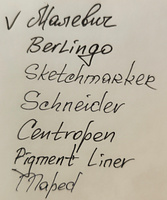 V Малевичъ
Berlingo
Sketchmarker
Schneider
Centropen
Pigment Liner
Maped